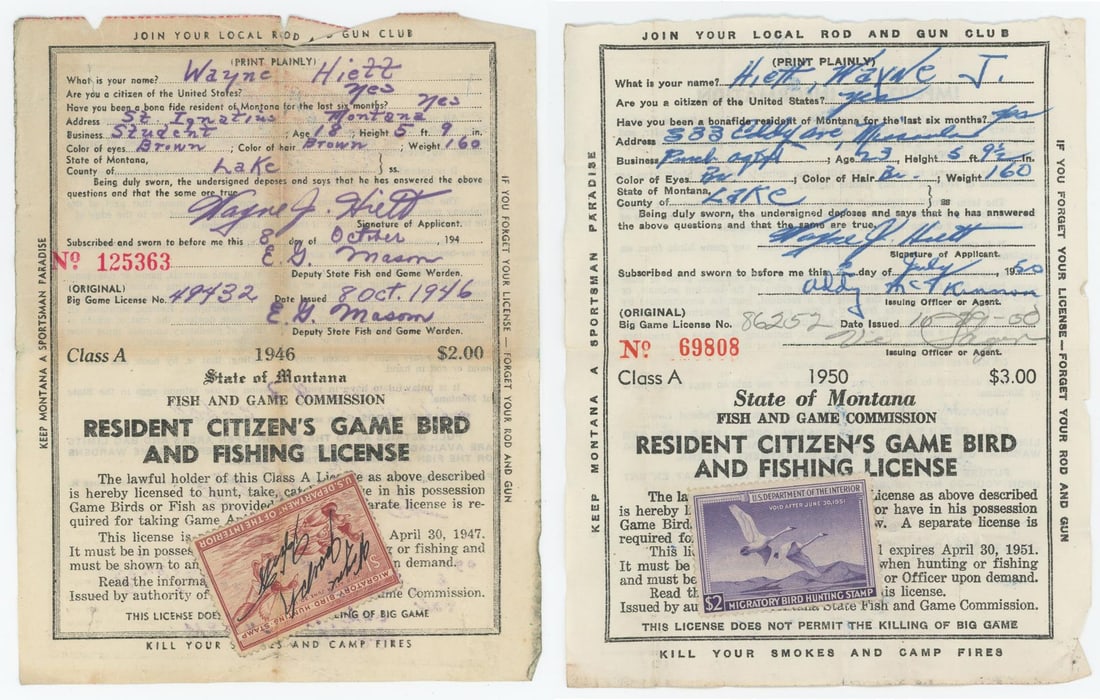 JOIN YOUR LOCAL ROD AND GUN CLUB
(PRINT PLAINLY)
What is your name? Wayne Hiett
Are you a citizen of the United States? Yes
Have you been a bona fide resident of Montana for the last six months? Yes
Address St. Ignatius Montana
Business Student ; Age 18 ; Height 5 ft. 9 in.
Color of eyes Brown ; Color of hair Brown ; Weight 160
State of Montana,
County of Lake } ss.
Being duly sworn, the undersigned deposes and says that he has answered the above
questions and that the same are true.
Wayne J. Hiett
Signature of Applicant.
Subscribed and sworn to before me this 8 day of October, 194
E. G. Mason
Deputy State Fish and Game Warden.
No 125363
(ORIGINAL)
Big Game License No. 49432 Date Issued 8 Oct. 1946
E. G. Mason
Deputy State Fish and Game Warden.
Class A 1946 $2.00
State of Montana
FISH AND GAME COMMISSION
RESIDENT CITIZEN'S GAME BIRD
AND FISHING LICENSE
The lawful holder of this Class A License as above described
is hereby licensed to hunt, take, in his possession
Game Birds or Fish as provided separate license is re-
quired for taking Game
This license is April 30, 1947.
It must be in possession or fishing and
must be shown to demand.
Read the
Issued by authority of Game Commission.
THIS LICENSE DOES KILLING OF BIG GAME
KILL YOUR SMOKES AND CAMP FIRES
KEEP MONTANA A SPORTSMAN PARADISE
IF YOU FORGET YOUR LICENSE — FORGET YOUR ROD AND GUN
U.S. DEPARTMENT OF THE INTERIOR
MIGRATORY BIRD HUNTING STAMP
Wayne
JOIN YOUR LOCAL ROD AND GUN CLUB
(PRINT PLAINLY)
What is your name? Hiett, Wayne J.
Are you a citizen of the United States? yes
Have you been a bonafide resident of Montana for the last six months? yes
Address 333 Eddy ave, Missoula
Business ; Age 23, Height 5 ft. 9½ in.
Color of Eyes Br. ; Color of Hair Br. ; Weight 160
State of Montana,
County of Lake } ss
Being duly sworn, the undersigned deposes and says that he has answered
the above questions and that the same are true.
Wayne J. Hiett
Signature of Applicant.
Subscribed and sworn to before me this 2 day of July, 1950
Issuing Officer or Agent.
(ORIGINAL)
Big Game License No. 86252 Date Issued
Issuing Officer or Agent.
No 69808
Class A 1950 $3.00
State of Montana
FISH AND GAME COMMISSION
RESIDENT CITIZEN'S GAME BIRD
AND FISHING LICENSE
The License as above described
is hereby or have in his possession
Game Birds A separate license is
required for
This expires April 30, 1951.
It must be when hunting or fishing
and must be or Officer upon demand.
Read this license.
Issued by State Fish and Game Commission.
THIS LICENSE DOES NOT PERMIT THE KILLING OF BIG GAME
KILL YOUR SMOKES AND CAMP FIRES
KEEP MONTANA A SPORTSMAN PARADISE
IF YOU FORGET YOUR LICENSE—FORGET YOUR ROD AND GUN
U.S. DEPARTMENT OF THE INTERIOR
VOID AFTER JUNE 30, 1951
$2 MIGRATORY BIRD HUNTING STAMP